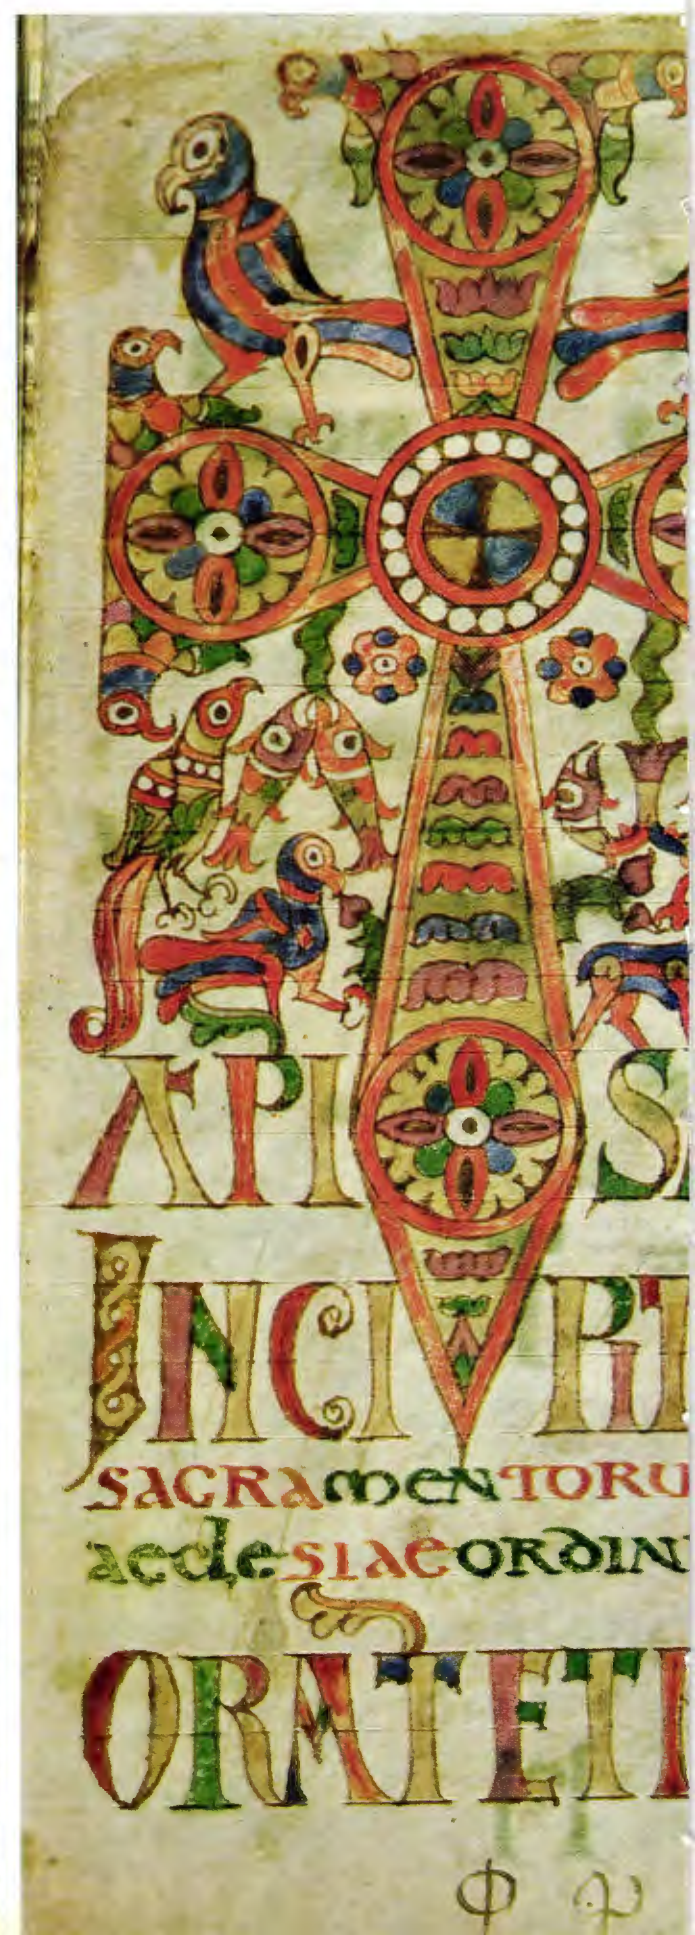 XPI S
INCIPIT
SACRAMENTORU
AECLESIAE ORDIN
ORAT ET